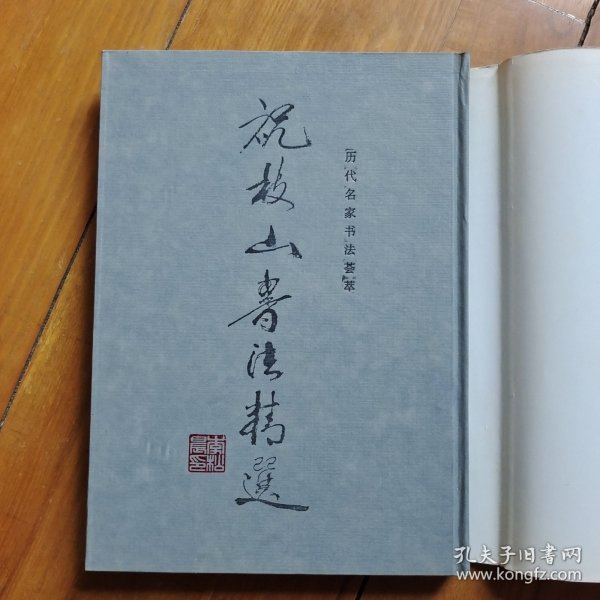 历代名家书法荟萃
祝枝山書法精選
李松晨印
孔夫子旧书网
www.kongfz.com